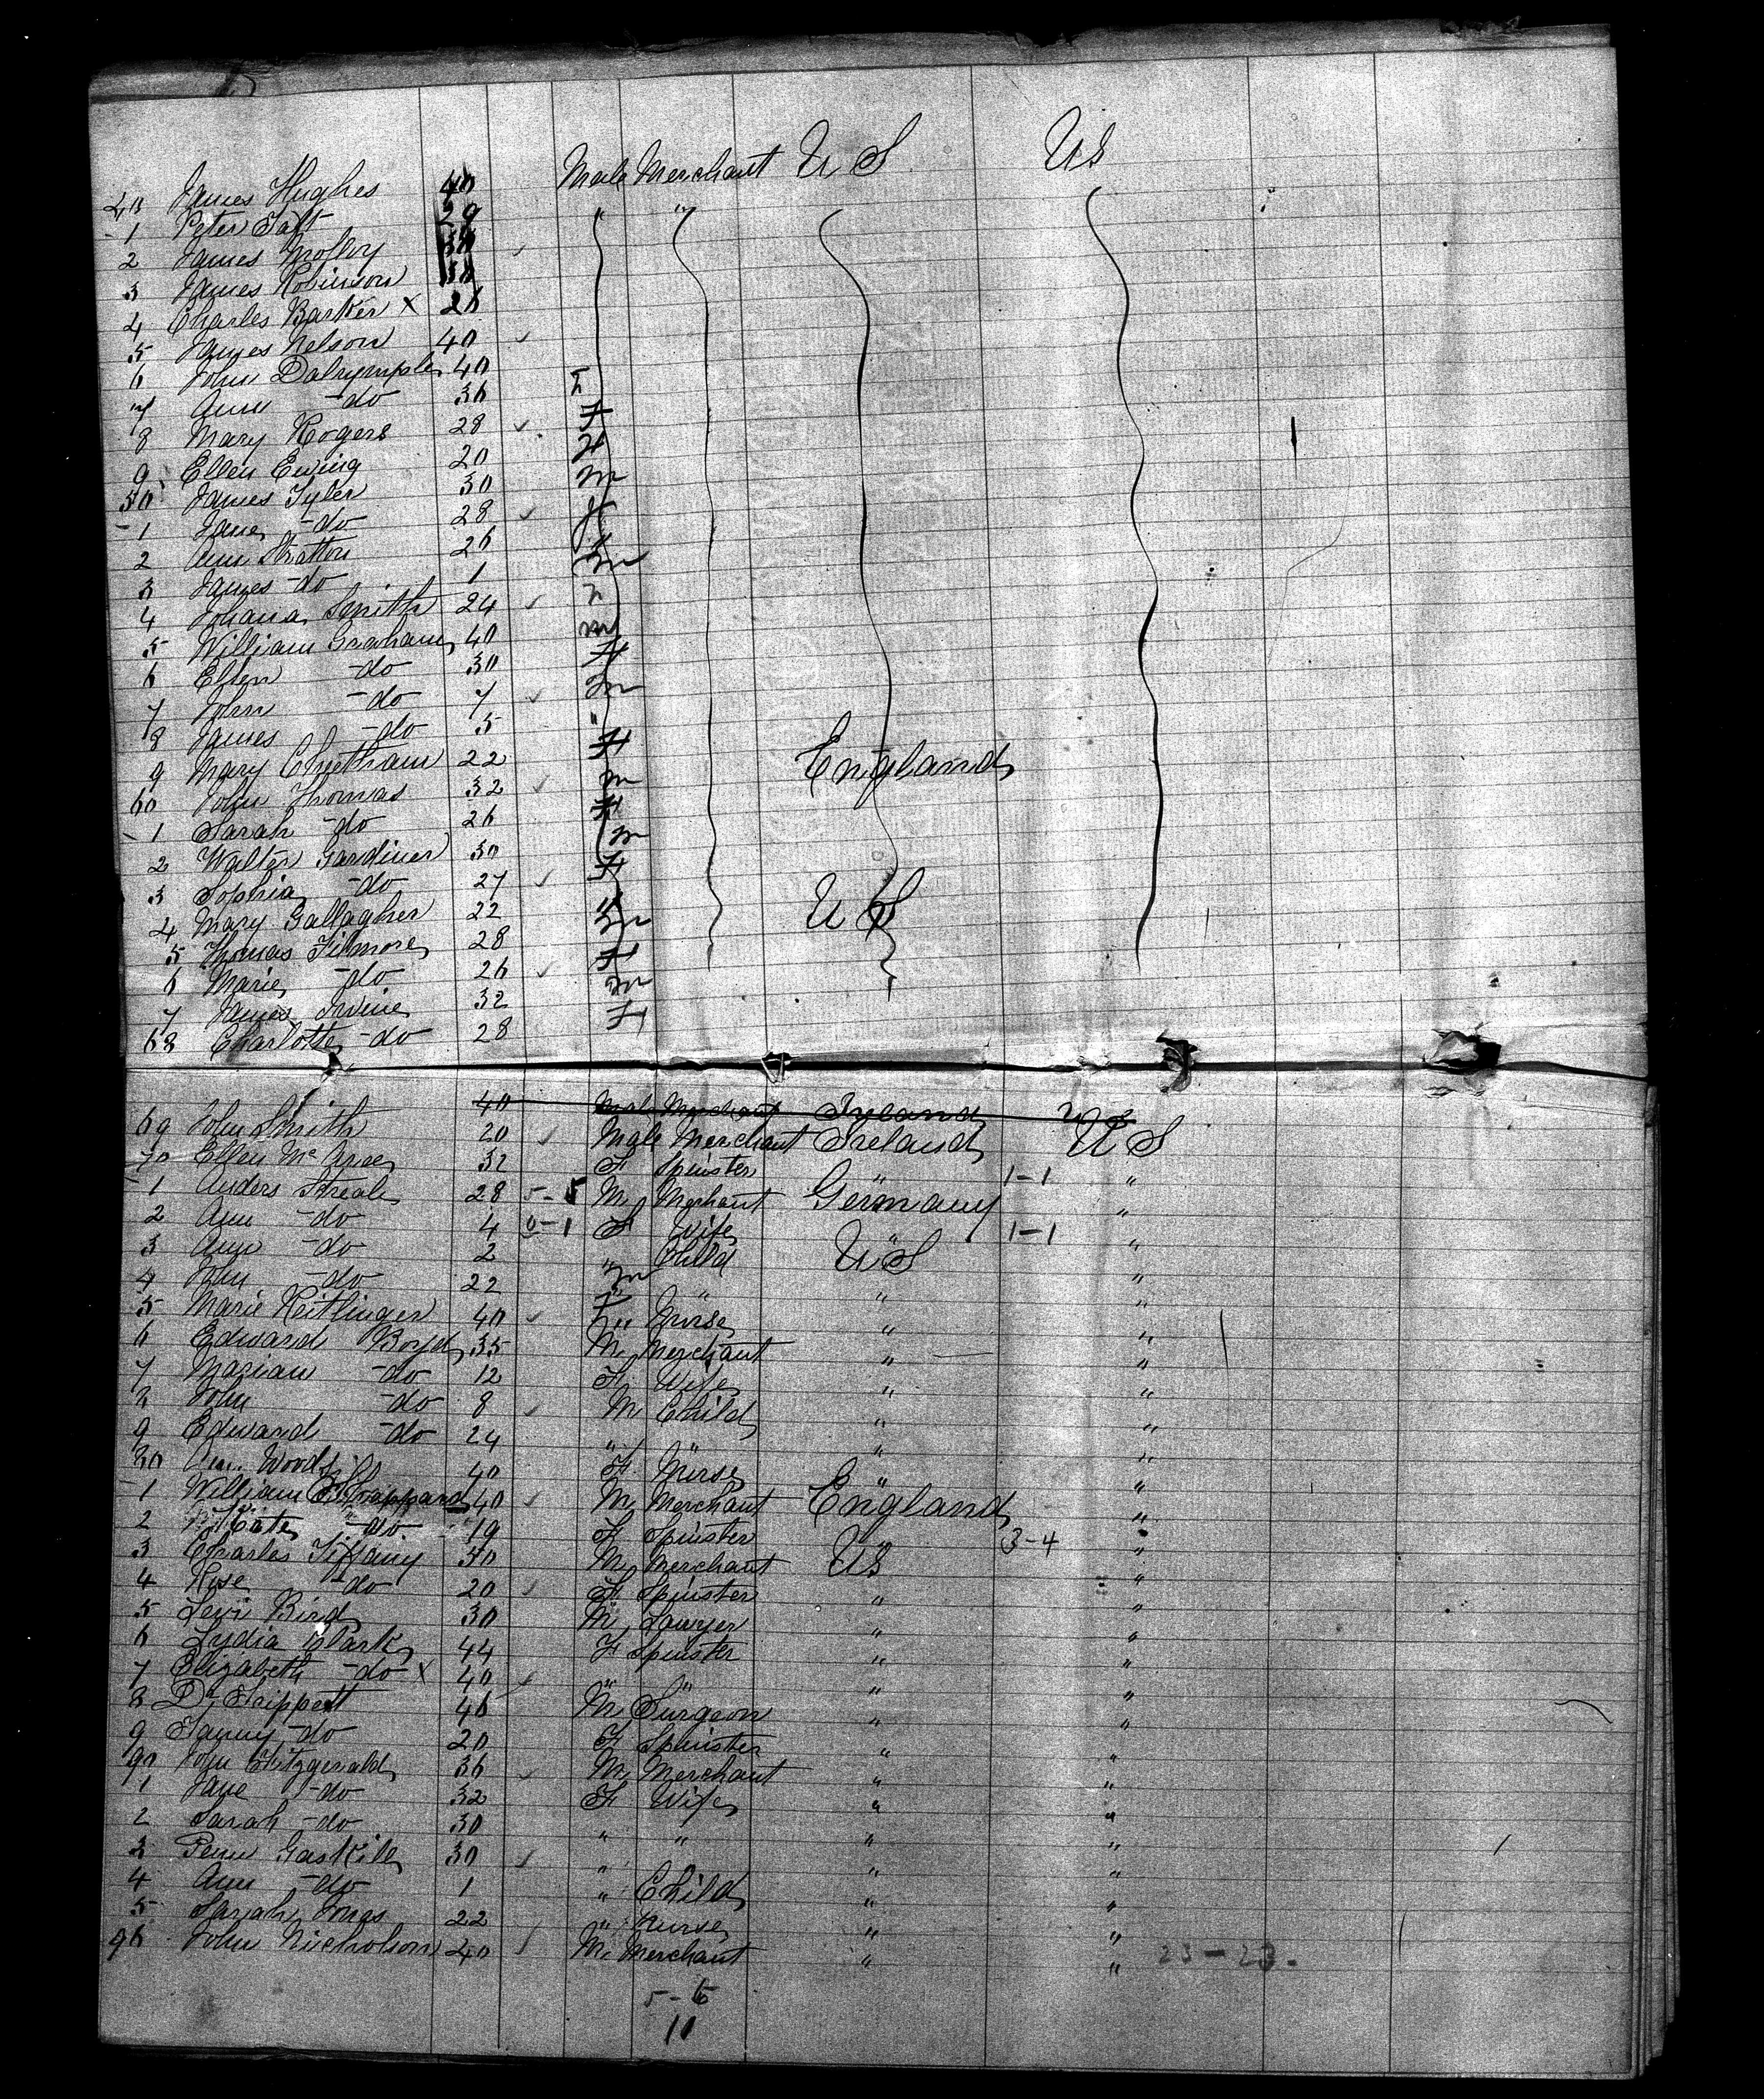 40 James Hughes 40 Male Merchant U S US
-1 Peter Taft 29 " "
2 James
3 James Robinson 38
4 Charles Barker x 26
5 James Nelson 40
6 John Dalrymple 40
7 Ann -do 36 F
8 Mary Rogers 28 F
9 Ellen Ewing 20 F
50 James Tyler 30 m
-1 Jane -do 28 F
2 Ann Stratton 26 "
3 James -do 1 m
4 Johana Smith 24 F
5 William Graham 40 m
6 Ellen -do 30 F
7 John -do 7 m
8 James -do 5 "
9 Mary Cheetham 22 F England
60 John Thomas 32 m
-1 Sarah -do 26 F
2 Walter Gardiner 30 m
3 Sophia -do 27 F
4 Mary Gallagher 22 " U S
5 Thomas Filmore 28 m
6 Marie -do 26 F
7 James Irvine 32 m
68 Charlotte -do 28 F
40 Male Merchant Ireland US
69 John Smith 20 Male Merchant Ireland U S
70 Ellen 32 F Spinster " 1-1 "
-1 Anders 28 5-5 M Merchant Germany "
2 Ann -do 4 0-1 F Wife " 1-1 "
3 Ann -do 2 " Child U S "
4 John -do 22 m " " "
5 Marie Reitlinger 40 F Nurse " "
6 Edward Boyd 35 M Merchant " "
7 Marian -do 12 F Wife " "
8 John -do 8 M Child " "
9 Edward -do 24 " " " "
80 Ann Woods 40 F Nurse " "
-1 William 40 M Merchant England "
2 Kate -do 19 F Spinster 3-4 "
3 Charles Tiffany 30 M Merchant US "
4 Rose -do 20 F Spinster " "
5 Levi Bird 30 M Lawyer " "
6 Lydia Clark 44 F Spinster " "
7 Elizabeth -do x 40 " " " "
8 Dr Trippett 46 M Surgeon " "
9 Fanny -do 20 F Spinster " "
90 John Fitzgerald 36 M Merchant " "
1 Jane -do 32 F Wife " "
2 Sarah -do 30 " " " "
3 Penn Gaskill 30 " " "
4 Ann -do 1 " Child " "
5 Sarah Jones 22 " Nurse " "
96 John Nicholson 40 M Merchant " " 23-23.
5-6
11